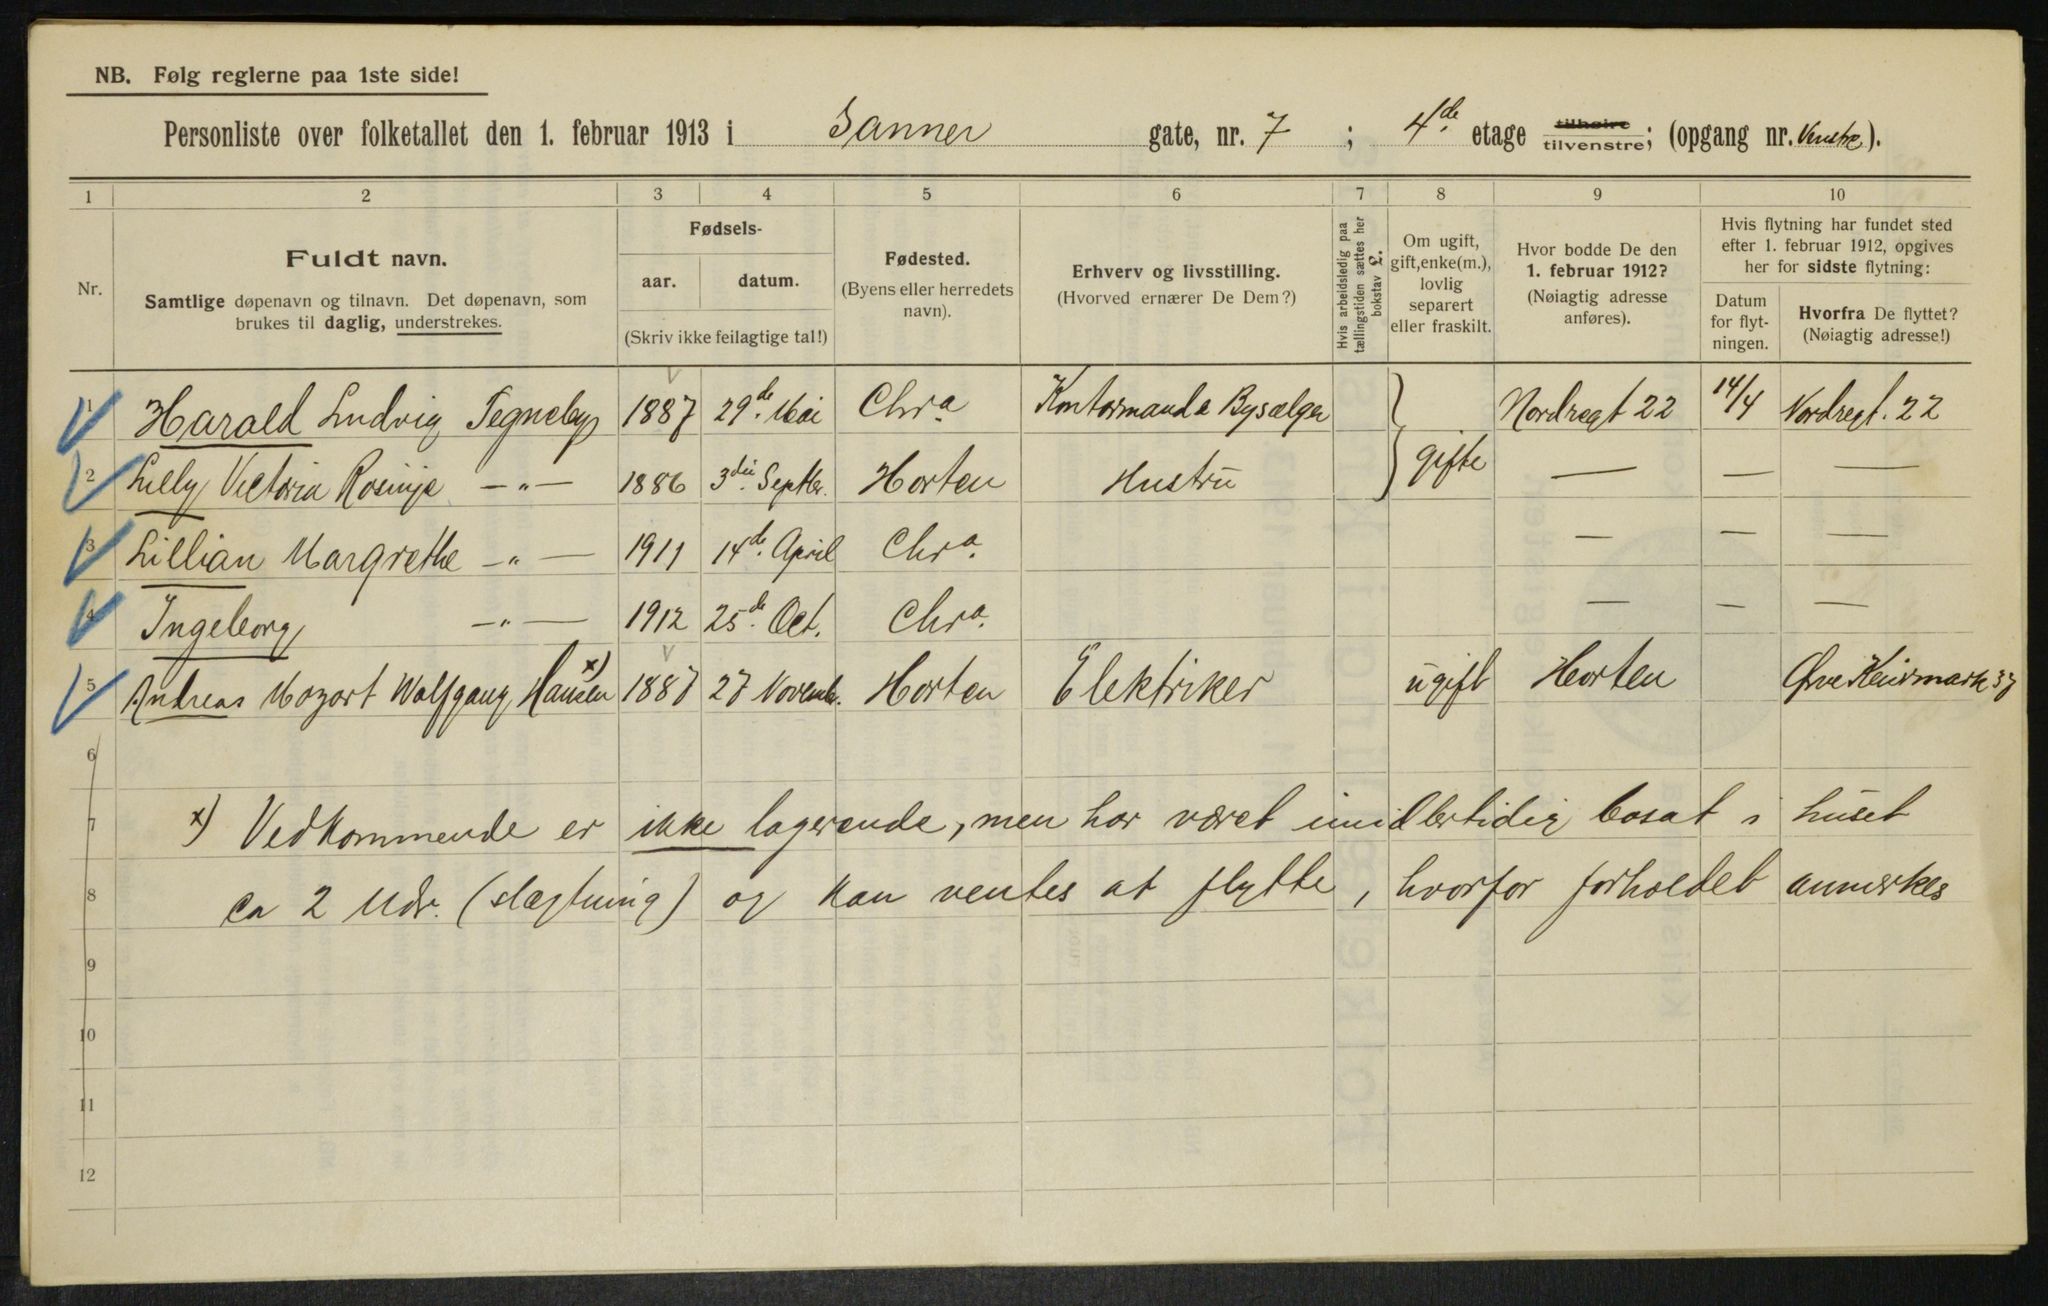 NB. Følg reglerne paa 1ste side!
Personliste over folketallet den 1. februar 1913 i Sanner gate, nr. 7 ; 4de etage tilhøire tilvenstre; (opgang nr. Venstre).
1 2 3 4 5 6 7 8 9 10
Nr.
Fuldt navn.
Samtlige døpenavn og tilnavn. Det døpenavn, som
brukes til daglig, understrekes.
Fødsels-
aar. datum.
(Skriv ikke feilagtige tal!)
Fødested.
(Byens eller herredets
navn).
Erhverv og livsstilling.
(Hvorved ernærer De Dem?)
Hvis arbeidsledig paa
tællingstiden sættes her
bokstav l.
Om ugift,
gift, enke(m.),
lovlig
separert
eller fraskilt.
Hvor bodde De den
1. februar 1912?
(Nøiagtig adresse
anføres).
Hvis flytning har fundet sted
efter 1. februar 1912, opgives
her for sidste flytning:
Datum
for flyt-
ningen.
Hvorfra De flyttet?
(Nøiagtig adresse!)
1 Harald Ludvig Tegneby 1887 29de Mai Chra Kontormand & Bysælger Nordregt 22 14/4 Nordregt. 22
2 Lilly Victoria — " — 1886 3die Septbr. Horten Hustru gifte — — —
3 Lillian Margrethe — " — 1911 14de April Chra. — — —
4 Ingeborg — " — 1912 25de Oct. Chra. — — —
5 Andreas Mozart Wolfgang Hansen x) 1887 27 Novembr. Horten Elektriker ugift Horten 37
6
7 x) Vedkommende er ikke logerende, men har været imidlertidig bosat i huset
8 ca 2 Mdr. (slægtning) og kan ventes at flytte, hvorfor forholdet anmerkes
9
10
11
12